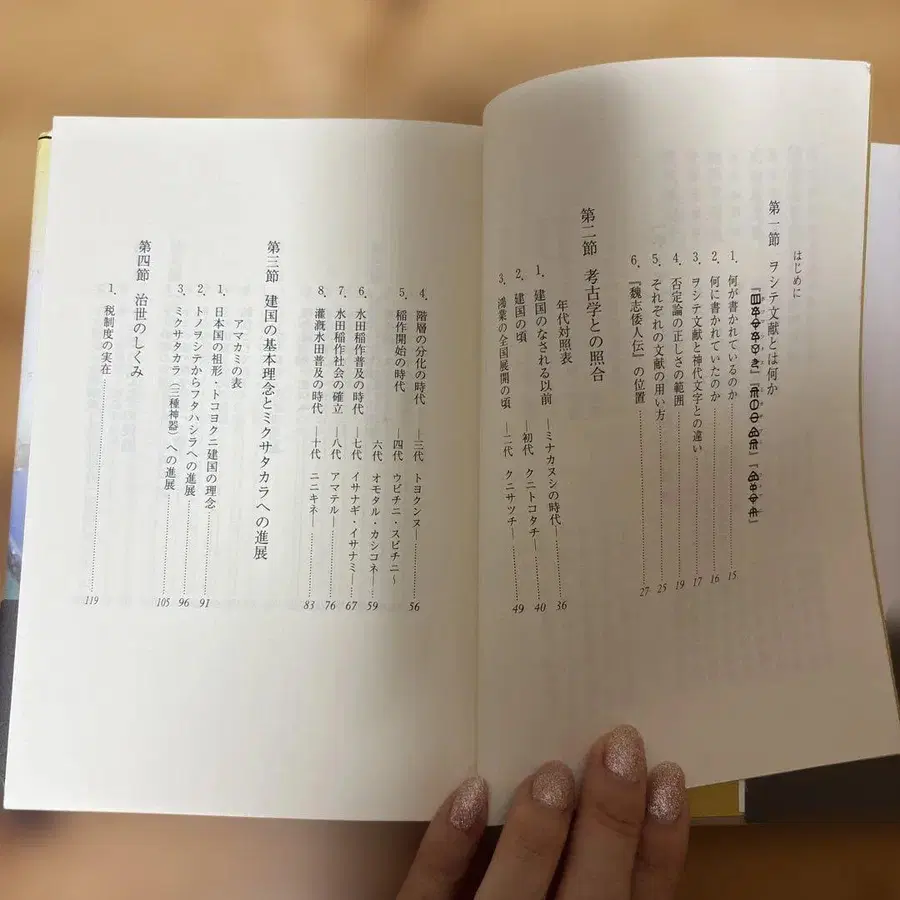 はじめに
第一節 ヲシテ文献とは何か
『』『』『』
1. 何が書かれているのか 15
2. 何に書かれていたのか 16
3. ヲシテ文献と神代文字との違い 17
4. 否定論の正しさの範囲 19
5. それぞれの文献の用い方 25
6. 『魏志倭人伝』の位置 27
第二節 考古学との照合
年代対照表
1. 建国のなされる以前 ―ミナカヌシの時代― 36
2. 建国の頃 ―初代 クニトコタチ― 40
3. 鴻業の全国展開の頃 ―二代 クニサツチ― 49
4. 階層の分化の時代 ―三代 トヨクンヌ― 56
5. 稲作開始の時代 ―四代 ウビチニ・スビチニ〜
六代 オモタル・カシコネ― 59
6. 水田稲作普及の時代 ―七代 イサナギ・イサナミ― 67
7. 水田稲作社会の確立 ―八代 アマテル― 76
8. 灌漑水田普及の時代 ―十代 ニニキネ― 83
第三節 建国の基本理念とミクサタカラへの進展
アマカミの表
1. 日本国の祖形・トコヨクニ建国の理念 91
2. トノヲシテからフタハシラへの進展 96
3. ミクサタカラ(三種神器)への進展 105
第四節 治世のしくみ
1. 税制度の実在 119